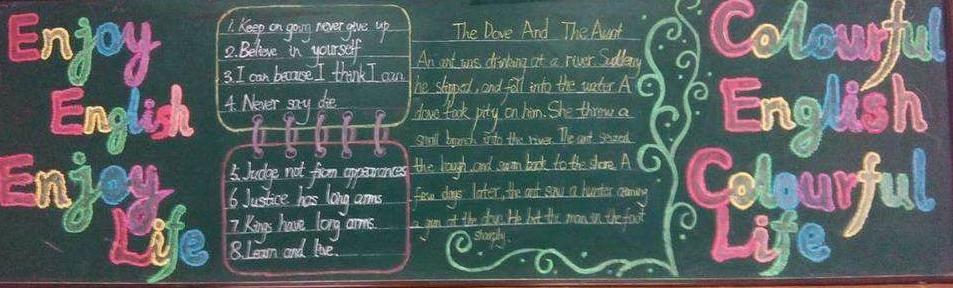 Enjoy
English
Enjoy
Life
1. Keep on goin never give up
2. Believe in yourself
3. I can because I think I can
4. Never say die
5. Judge not from appearances
6 Justice has long arms
7. Kings have long arms.
8. Learn and live.
The Dove And The Aunt
An ant was drinking at a river Suddenly
he slipped, and fell into the water A
dove took pity on him. She threw a
small branch into the river. The ant seized
the bough and swam back to the shore. A
few days later, the ant saw a hunter aiming
a gun at the dove He bit the man in the foot
sharply.
Colourful
English
Colourful
Life